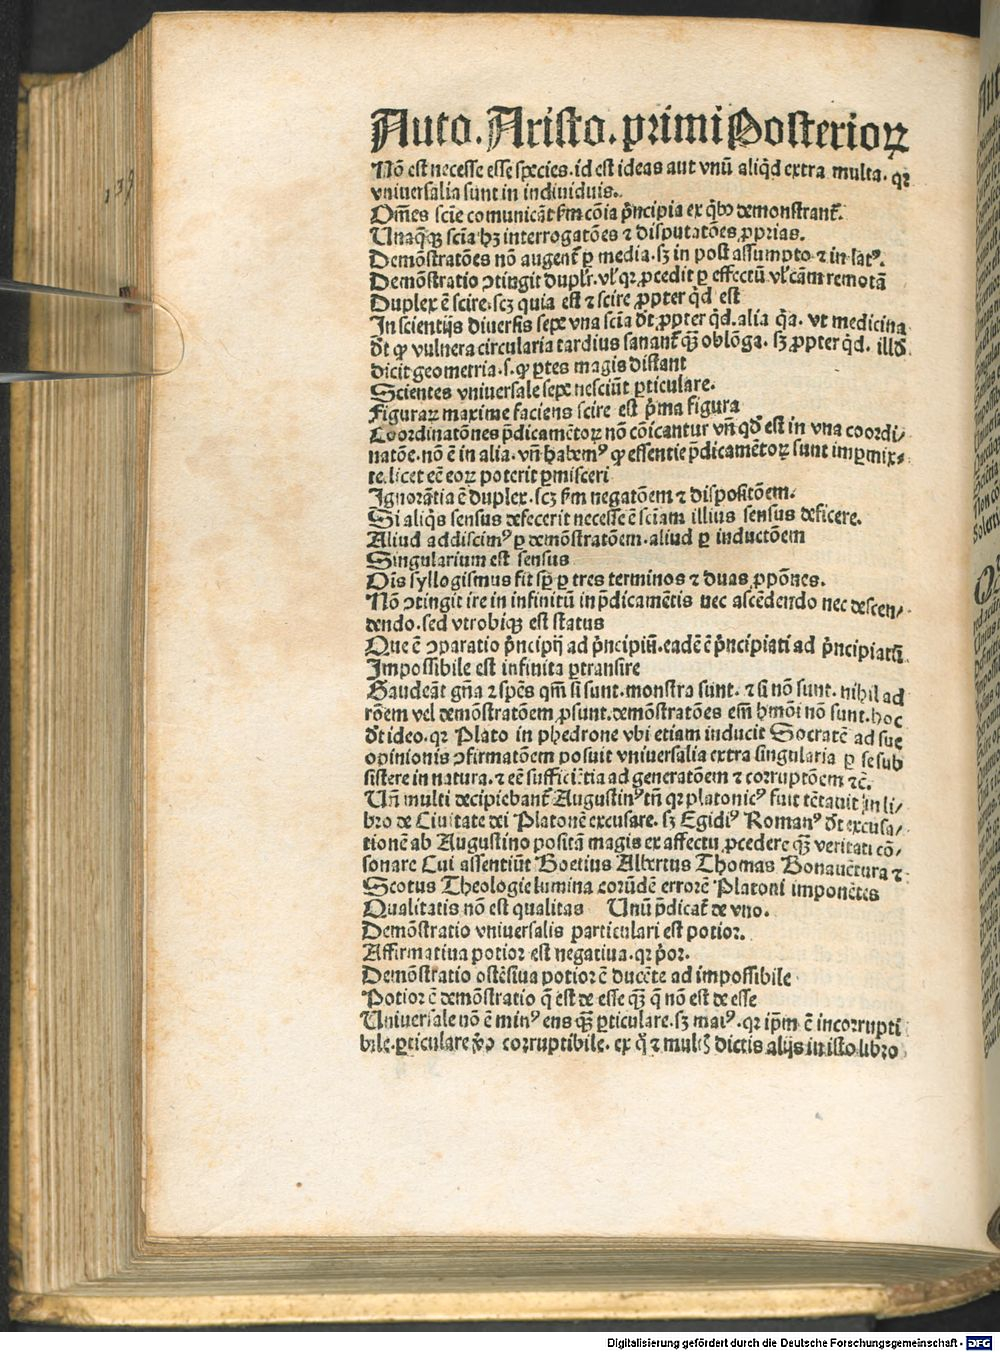 Aucto. Aristo. primi Posterioꝝ
Nō est necesse esse species. id est ideas aut vnū aliqd̓ extra multa. qꝛ
vniuersalia sunt in indiuiduis.
Om̄es scīe comunicāt ẜm cōia pͥncipia ex qͥbꝰ demonstrant᷑.
Unaq̄qꝫ scīa hꝫ interrogatōes ⁊ disputatōes ꝓprias.
Demōstratōes nō augent᷑ ꝑ media. sꝫ in post assumpto ⁊ in latꝰ.
Demōstratio ↄtingit duplr̄. vl̓ qꝛ ꝓcedit ꝑ effectū vl̓ cām remotā
Duplex ē scire. scꝫ quia est ⁊ scire ꝓpter qd̓ est
In scientijs diuersis sepe vna scīa dt̓ ꝓpter qd̓. alia qͥa. vt medicina
dt̓ ꝙ vulnera circularia tardius sanant᷑ qꝫ̄ oblōga. sꝫ ꝓpter qd̓. illd̓
dicit geometria. s. ꝙ ꝑtes magis distant
Scientes vniuersale sepe nesciūt ꝑticulare.
Figuraꝝ maxime faciens scire est pͥma figura
Coordinatōnes p̄dicamētoꝝ nō cōicantur vn̄ qd̓ est in vna coordi⸗
natōe. nō ē in alia. vn̄ habemꝰ ꝙ essentie p̄dicamētoꝝ sunt imꝑmix⸗
te. licet eē eoꝝ poterit ꝑmisceri
Ignorātia ē duplex. scꝫ ẜm negatōem ⁊ dispositōem.
Si aliqͥs sensus defecerit necesse ē scīam illius sensus deficere.
Aliud addiscimꝰ ꝑ demōstratōem. aliud ꝑ inductōem
Singularium est sensus
Oīs syllogismus fit sꝑ ꝑ tres terminos ⁊ duas ꝓpōnes.
Nō ↄtingit ire in infinitū in p̄dicamētis nec ascēdendo nec descen⸗
dendo. sed vtrobiqꝫ est status
Que ē ↄparatio pͥncipij ad pͥncipiū. eadē ē pͥncipiati ad pͥncipiatū.
Impossibile est infinita ꝑtransire
Gaudeāt gn̄a ⁊ spēs qm̄ si sunt. monstra sunt. ⁊ si nō sunt. nihil ad
rōem vel demōstratōem ꝓsunt. demōstratōes em̄ hmōi nō sunt. hoc
dt̓ ideo. qꝛ Plato in phedrone vbi etiam inducit Socratē ad sue
opinionis ↄfirmatōem posuit vniuersalia extra singularia ꝑ se sub
sistere in natura. ⁊ eē sufficiētia ad generatōem ⁊ corruptōem ⁊c̄.
Un̄ multi decipiebant᷑ Augustinꝰ tn̄ qꝛ platonicꝰ fuit tētauit in li⸗
bro de Ciuitate dei Platonē excusare. sꝫ Egidiꝰ Romanꝰ dt̓ excusa⸗
tionē ab Augustino positā magis ex affectu ꝓcedere qꝫ̄ veritati cō⸗
sonare Cui assentiūt Boetius Albertus Thomas Bonauētura ⁊
Scotus Theologie lumina eorūdē errorē Platoni imponētes
Qualitatis nō est qualitas Unū p̄dicat᷑ de vno.
Demōstratio vniuersalis particulari est potior.
Affirmatiua potior est negatiua. qꝛ pͥor.
Demōstratio ostēsiua potior ē ducēte ad impossibile
Potior ē demōstratio q̄ est de esse qꝫ̄ q̄ nō est de esse
Uniuersale nō ē minꝰ ens qꝫ̄ ꝑticulare. sꝫ maiꝰ. qꝛ ip̄m ē incorrupti
bile. ꝑticulare v̓o corruptibile. ex qͥ ⁊ multꝭ dictis alijs in isto libro
139
Digitalisierung gefördert durch die Deutsche Forschungsgemeinschaft - DFG